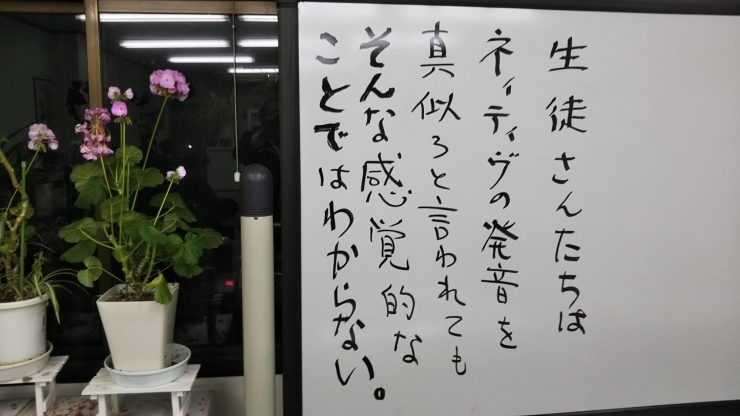 生徒さんたちは
ネィティヴの発音を
真似ろと言われても
そんな感覚的な
ことではわからない。